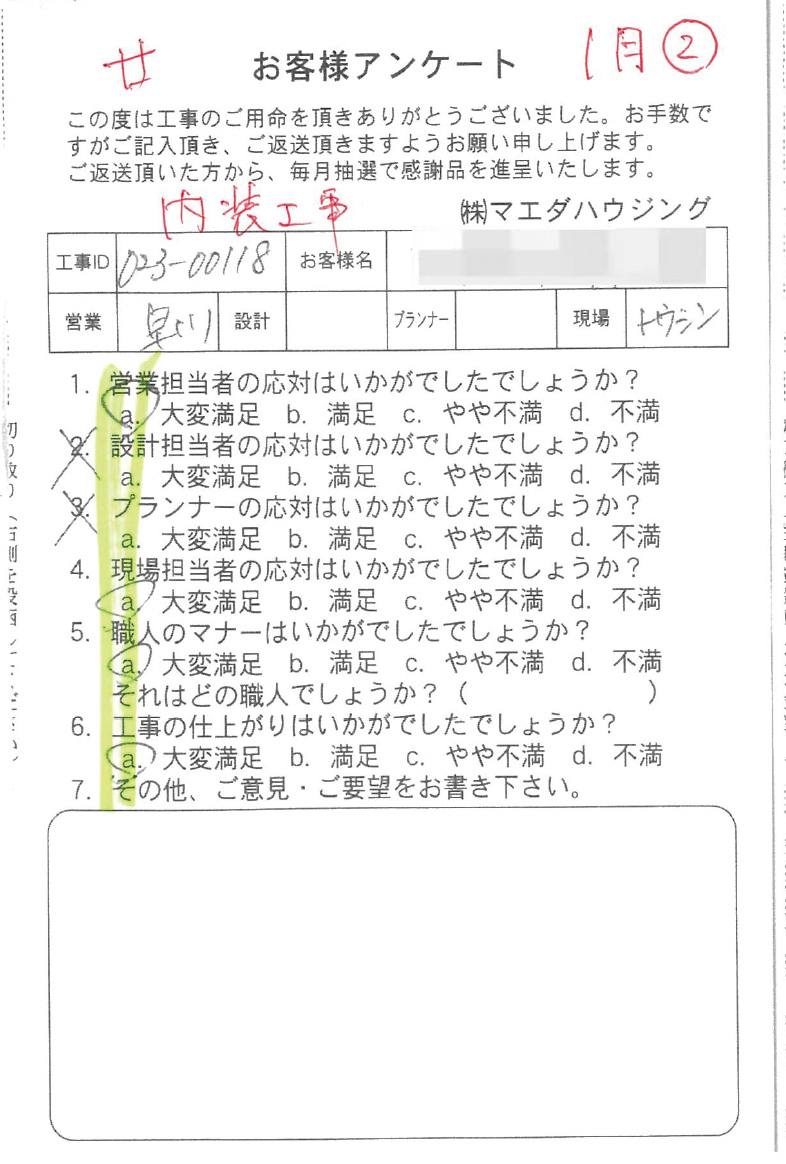 廿 お客様アンケート 1月②
この度は工事のご用命を頂きありがとうございました。お手数で
すがご記入頂き、ご返送頂きますようお願い申し上げます。
ご返送頂いた方から、毎月抽選で感謝品を進呈いたします。
内装工事 ㈱マエダハウジング
工事ID 023-00118 お客様名
営業 設計 プランナー 現場 トウシン
1. 営業担当者の応対はいかがでしたでしょうか？
a. 大変満足 b. 満足 c. やや不満 d. 不満
2. 設計担当者の応対はいかがでしたでしょうか？
a. 大変満足 b. 満足 c. やや不満 d. 不満
3. プランナーの応対はいかがでしたでしょうか？
a. 大変満足 b. 満足 c. やや不満 d. 不満
4. 現場担当者の応対はいかがでしたでしょうか？
a. 大変満足 b. 満足 c. やや不満 d. 不満
5. 職人のマナーはいかがでしたでしょうか？
a. 大変満足 b. 満足 c. やや不満 d. 不満
それはどの職人でしょうか？（ ）
6. 工事の仕上がりはいかがでしたでしょうか？
a. 大変満足 b. 満足 c. やや不満 d. 不満
7. その他、ご意見・ご要望をお書き下さい。